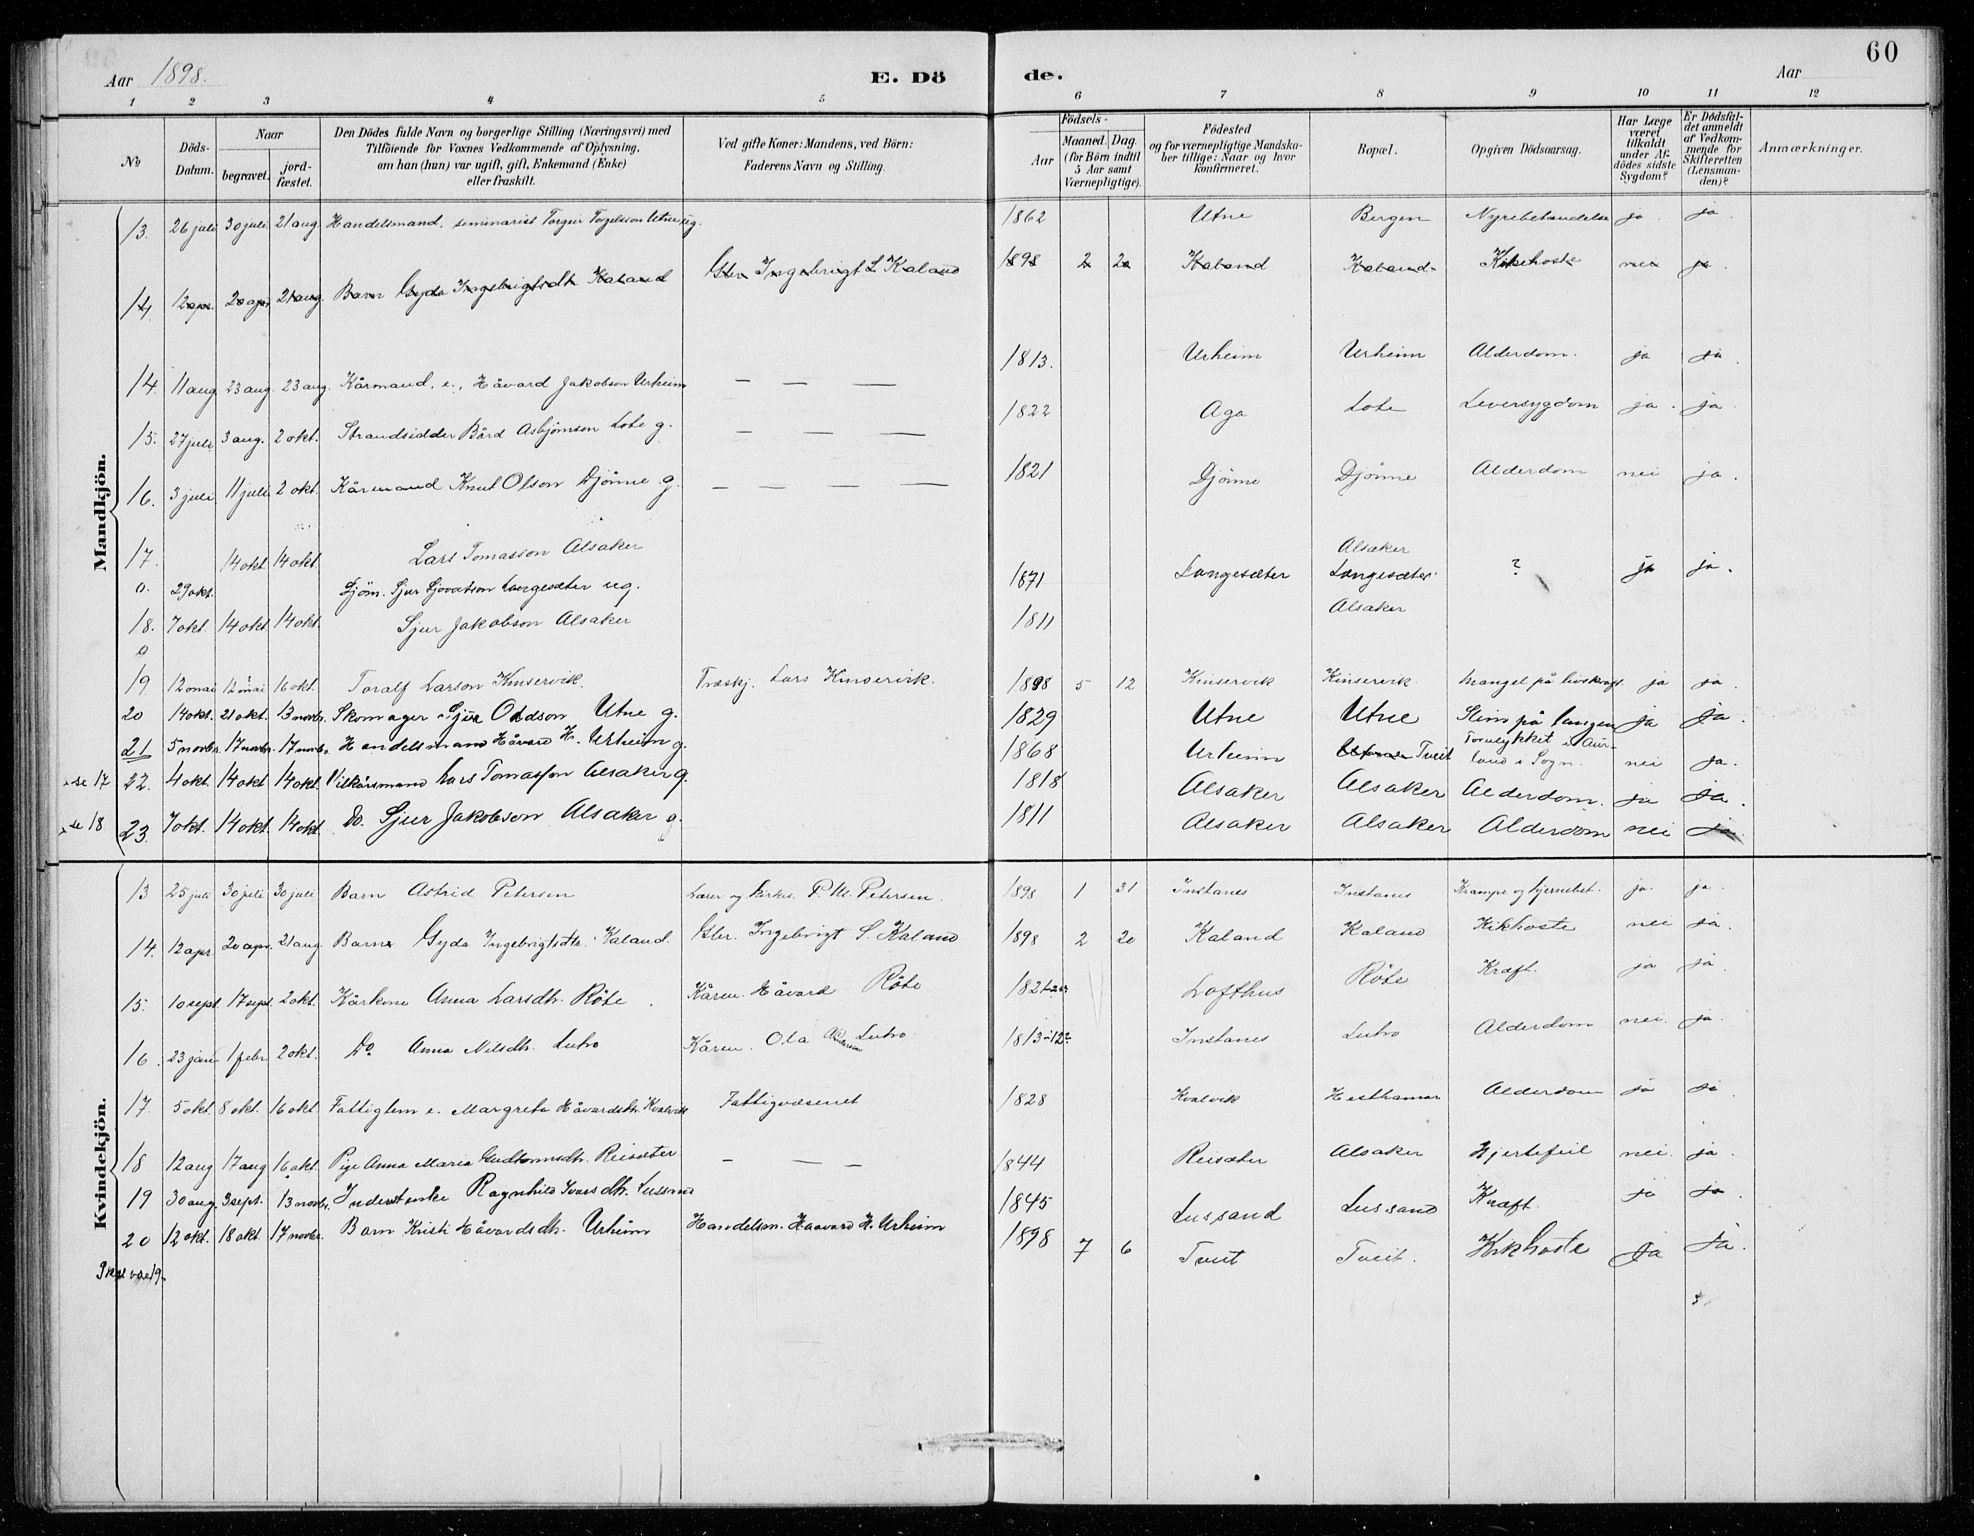 60
Aar 1898. E. Dö de. Aar
1 2 3 4 5 6 7 8 9 10 11 12
No
Döds-Datum.
Naar begravet. jord-fæstet.
Den Dödes fulde Navn og borgerlige Stilling (Næringsvei) med Tilföiende for Voxnes Vedkommende af Oplysning, om han (hun) var ugift, gift, Enkemand (Enke) eller fraskilt.
Ved gifte Koner: Mandens, ved Börn: Faderens Navn og Stilling.
Födsels- Aar Maaned. Dag. (for Börn indtil 5 Aar samt Værnepligtige).
Födested og for værnepligtige Mandskaber tillige: Naar og hvor konfirmeret.
Bopæl.
Opgiven Dödsaarsag.
Har Læge været tilkaldt under Afdödes sidste Sygdom?
Er Dödsfaldet anmeldt af Vedkommende for Skifteretten (Lensmanden)?
Anmærkninger.
Mandkjön.
13. 26 juli 30 juli 21 aug Handelsmand, seminarist Torgeir Torgilsson Utne ug. 1862 Utne Bergen Nyrebetændelse ja ja
14. 12 apr. 20 apr. 21 aug. Barn Gyda Ingebrigtsdtr Kaland Gbr. Ingebrigt S. Kaland 1898 2 20 Kaland Kaland Kikhoste nei ja
14. 11 aug 23 aug. 23 aug. Kårmand, e., Håvard Jakobson Urheim — — — 1813. Urheim Urheim Alderdom. ja ja
15. 27 juli 3 aug. 2 okt. Strandsidder Bård Asbjørnson Lote g. — — — 1822 Aga Lote Leversygdom ja. ja.
16. 3 juli 11 juli 2 okt. Kårmand Knut Olson Djönne g. — — — — 1821 Djönne Djönne Alderdom nei ja.
17. 14 okt. 14 okt. Lars Tomasson Alsaker Alsaker
0. 29 okt. Sjöm. Sjur Sjovatson Langesæter ug. 1871 Langesæter Langesæter ? ja ja.
18. 7 okt. 14 okt. 14 okt. Sjur Jakobson Alsaker 1811 Alsaker
0
19 12 mai 12 mai 16 okt. Toralf Larson Kinservik Træskj. Lars Kinservik. 1898 5 12 Kinservik Kinservik. Mangel på livskraft. ja ja.
20 14 okt. 21 okt. 13 novbr. Skomager Sjur Oddson Utne g. 1829 Utne Utne Slim på lungen ja ja.
21 5 novbr. 17 novbr. 17 novbr. Handelsmand Håvard H. Urheim g. 1868 Urheim Tveit Forulykket i Aurland i Sogn. nei ja.
se 17 22. 4 okt. 14 okt. 14 okt. Vilkårsmand Lars Tomasson Alsaker g. 1818 Alsaker Alsaker Alderdom. ja ja.
se 18 23. 7 okt. 14 okt. 14 okt. Do. Sjur Jakobson Alsaker g. 1811 Alsaker Alsaker Alderdom nei ja.
Kvindekjön.
13 25 juli 30 juli 30 juli Barn Astrid Petersen Lærer og kirks. P. M. Petersen. 1898 1 31 Instanes Instanes Krampe og hjernebet. ja. ja.
14. 12 apr. 20 apr. 21 aug. Barn Gyda Ingebrigtsdtr. Kaland. Gbr. Ingebrigt S. Kaland 1898 2 20 Kaland Kaland Kikhoste nei ja.
15. 10 sept. 17 sept. 2 okt. Kårkone Anna Larsdtr. Röte. Kårm. Håvard Röte 1821 Lofthus Röte Kræft. ja ja.
16. 23 jan. 1 febr. 2 okt. Do Anna Nilsdtr. Lutro Kårm. Ola Lutro 1813 Instanes Lutro Alderdom nei. ja.
17. 5 okt. 8 okt. 16 okt. Fattiglem e. Margreta Håvardsdtr. Kvalvik Fattigvæsenet 1828 Kvalvik Hesthamar Alderdom ja ja
18 12 aug 17 aug 16 okt. Pige Anna Maria Gudtormsdtr. Reisæter — — — 1844 Reisæter Alsaker Hjertefeil nei. ja.
19 30 aug. 3 sept. 13 novbr. Inderstenke Ragnhild Ivarsdtr. Lussand 1845 Lussand Lussand Kræft. ja ja
20 12 okt. 18 okt. 17 novbr. Barn Kristi Håvardsdtr. Urheim Handelsm. Haavard H. Urheim 1898 7 6 Tveit Tveit. Kikhoste ja ja.
Skal være 19.